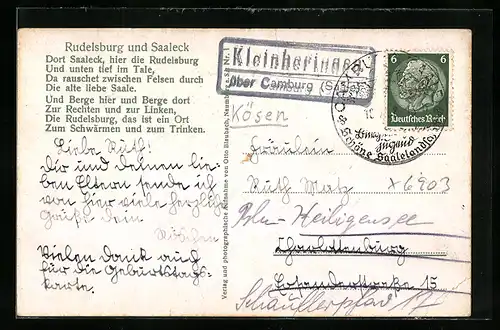 Rudelsburg und Saaleck
Dort Saaleck, hier die Rudelsburg
Und unten tief im Tale,
Da rauschet zwischen Felsen durch
Die alte liebe Saale.
Und Berge hier und Berge dort
Zur Rechten und zur Linken,
Die Rudelsburg, das ist ein Ort
Zum Schwärmen und zum Trinken.
Liebe Ruth!
Dir und deinen lie-
ben Eltern sende ich
von hier viele herzliche
Grüße dein
Vielen Dank auch
für die Geburtstags-
karte.
Verlag und photographische Aufnahme von Otto Blaubach, Naumburg a. S. Nr. 1
Kleinheringen
über Camburg (Saale)
Kösen
6 6
Deutsches Reich
Burgen
Jugend
Schöne Saalelandschaft
Fräulein
Ruth Matz
x 6903
Bln-Heiligensee
Charlottenburg
Schaufflerpfad 17